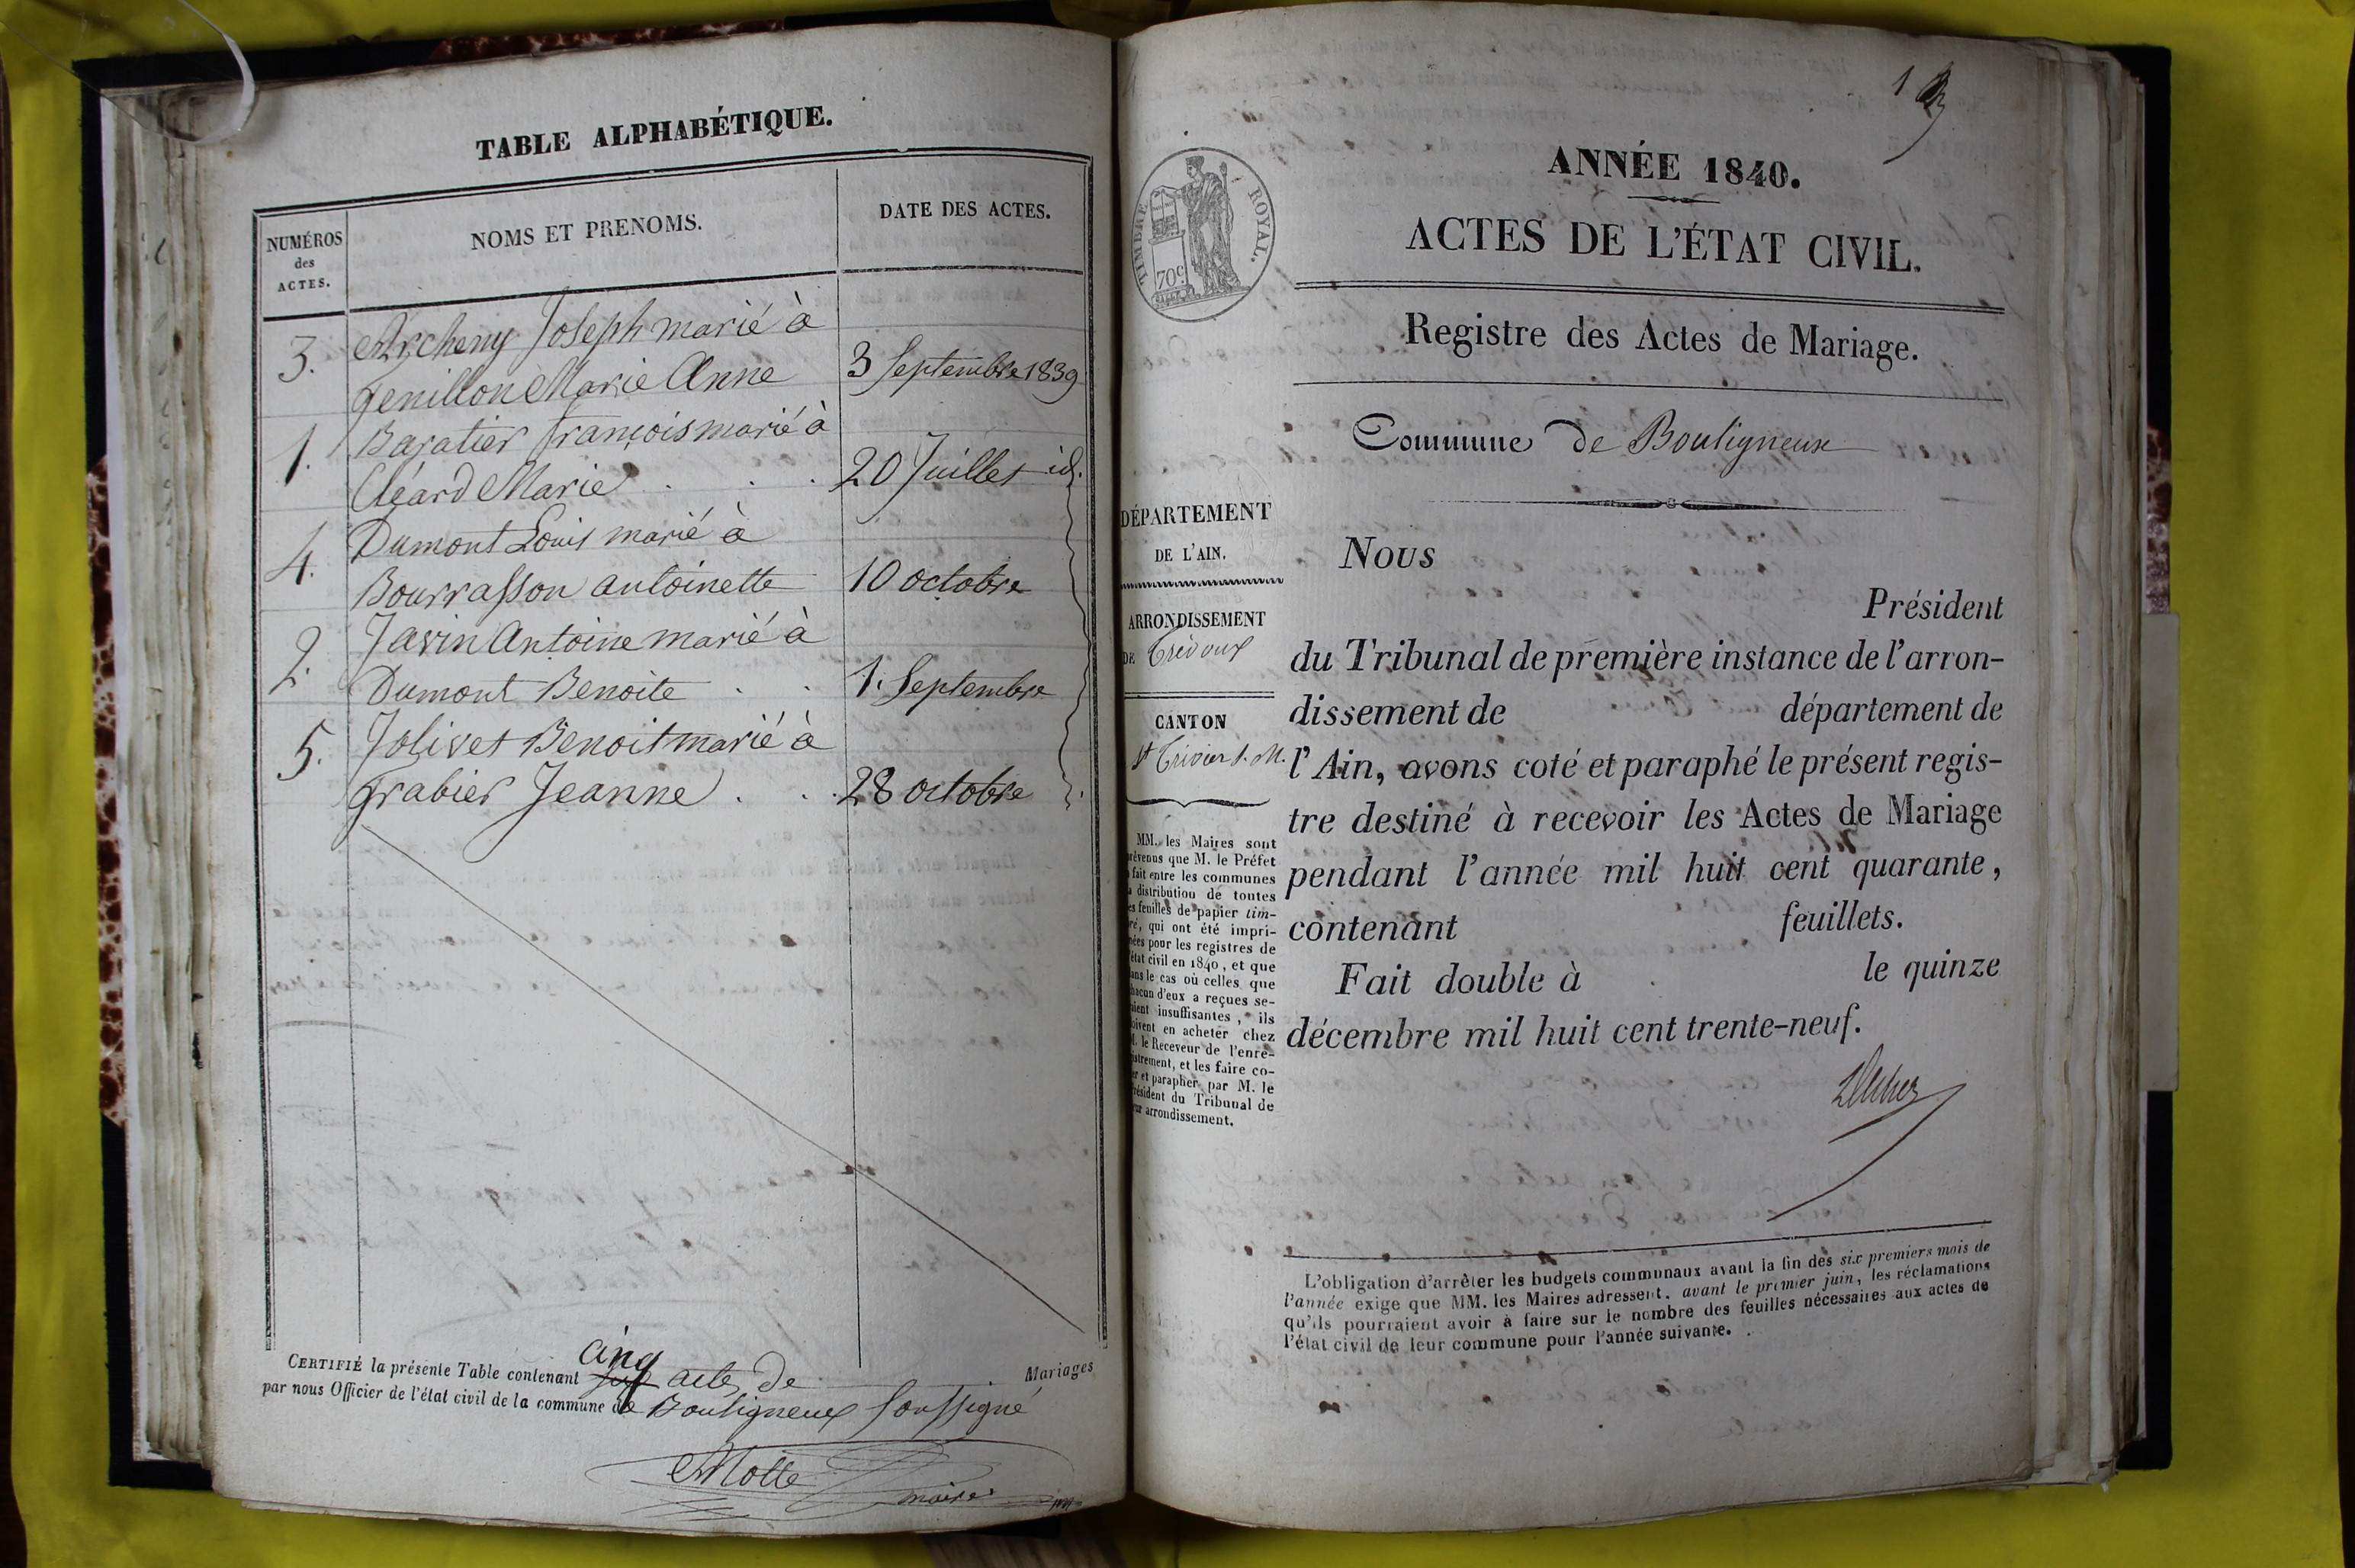 TABLE ALPHABÉTIQUE.
NUMÉROS
des
ACTES.
NOMS ET PRENOMS.
DATE DES ACTES.
3. Archeny Joseph marié à
genillon Marie Anne 3 Septembre 1839
1. Baratier françois marié à
Cléard Marie . . . 20 Juillet id.
4. Dumont Louis marié à
Bourrasson antoinette 10 octobre
2. Javin Antoine marié à
Dumont Benoite . . 1. Septembre
5. Jolivet Benoit marié à
grabier Jeanne . . . 28 octobre
CERTIFIÉ la présente Table contenant cinq actes de Mariages
par nous Officier de l'état civil de la commune de Bouligneux soussigné
Motte
maire
1
TIMBRE ROYAL.
70c
ANNÉE 1840.
ACTES DE L'ÉTAT CIVIL.
Registre des Actes de Mariage.
Commune de Bouligneux
DÉPARTEMENT
DE L'AIN.
ARRONDISSEMENT
DE Trévoux
CANTON
St Trivier s. M.
MM. les Maires sont
prévenus que M. le Préfet
a fait entre les communes
la distribution de toutes
les feuilles de papier tim-
bré, qui ont été impri-
mées pour les registres de
l'état civil en 1840, et que
dans le cas où celles que
chacun d'eux a reçues se-
raient insuffisantes, ils
doivent en acheter chez
M. le Receveur de l'enre-
gistrement, et les faire co-
ter et parapher par M. le
Président du Tribunal de
leur arrondissement.
Nous
Président
du Tribunal de première instance de l'arron-
dissement de département de
l'Ain, avons coté et paraphé le présent regis-
tre destiné à recevoir les Actes de Mariage
pendant l'année mil huit cent quarante,
contenant feuillets.
Fait double à le quinze
décembre mil huit cent trente-neuf.
L'obligation d'arrêter les budgets communaux avant la fin des six premiers mois de
l'année exige que MM. les Maires adressent, avant le premier juin, les réclamations
qu'ils pourraient avoir à faire sur le nombre des feuilles nécessaires aux actes de
l'état civil de leur commune pour l'année suivante.